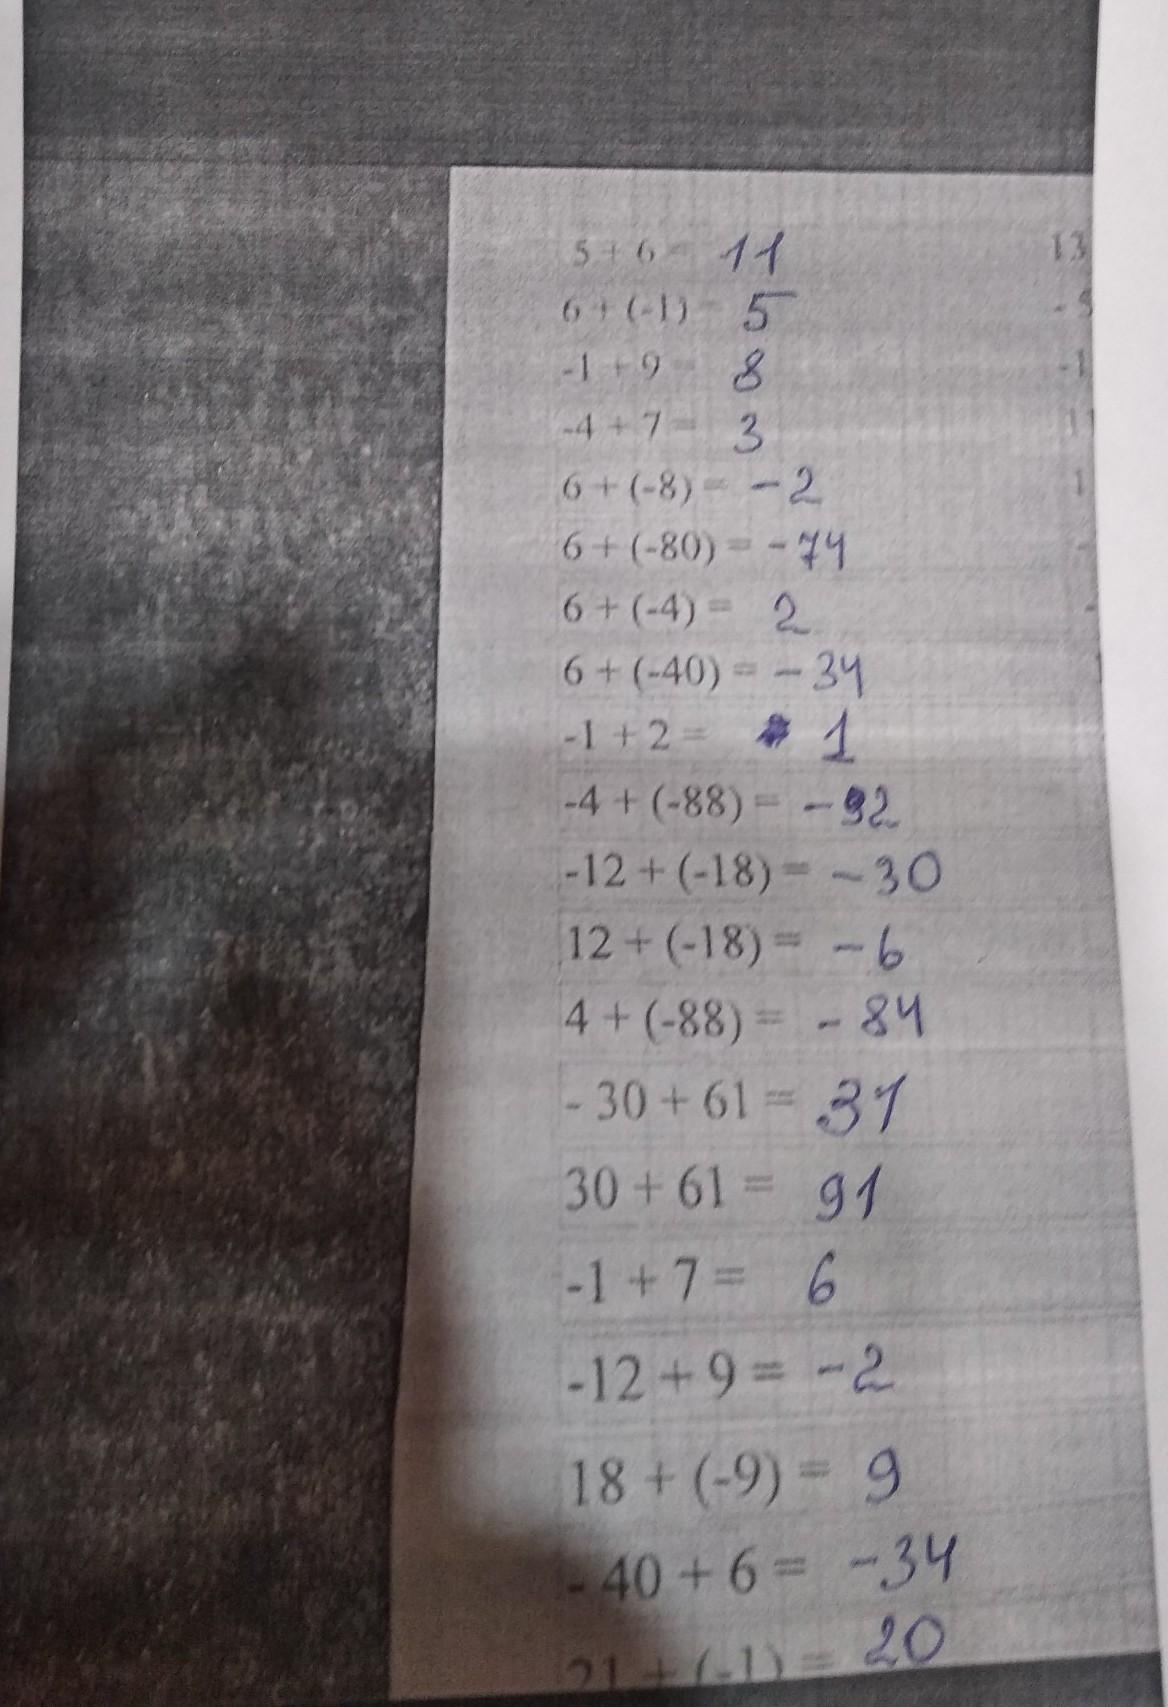 5 + 6 = 11
13
6 + (-1) = 5
- 5
-1 + 9 = 8
-1
-4 + 7 = 3
11
6 + (-8) = -2
1
6 + (-80) = -74
-
6 + (-4) = 2
-
6 + (-40) = -34
-1 + 2 = 1
-4 + (-88) = -92
-12 + (-18) = -30
12 + (-18) = -6
4 + (-88) = -84
- 30 + 61 = 31
30 + 61 = 91
-1 + 7 = 6
-12 + 9 = -2
18 + (-9) = 9
- 40 + 6 = -34
21 + (-1) = 20